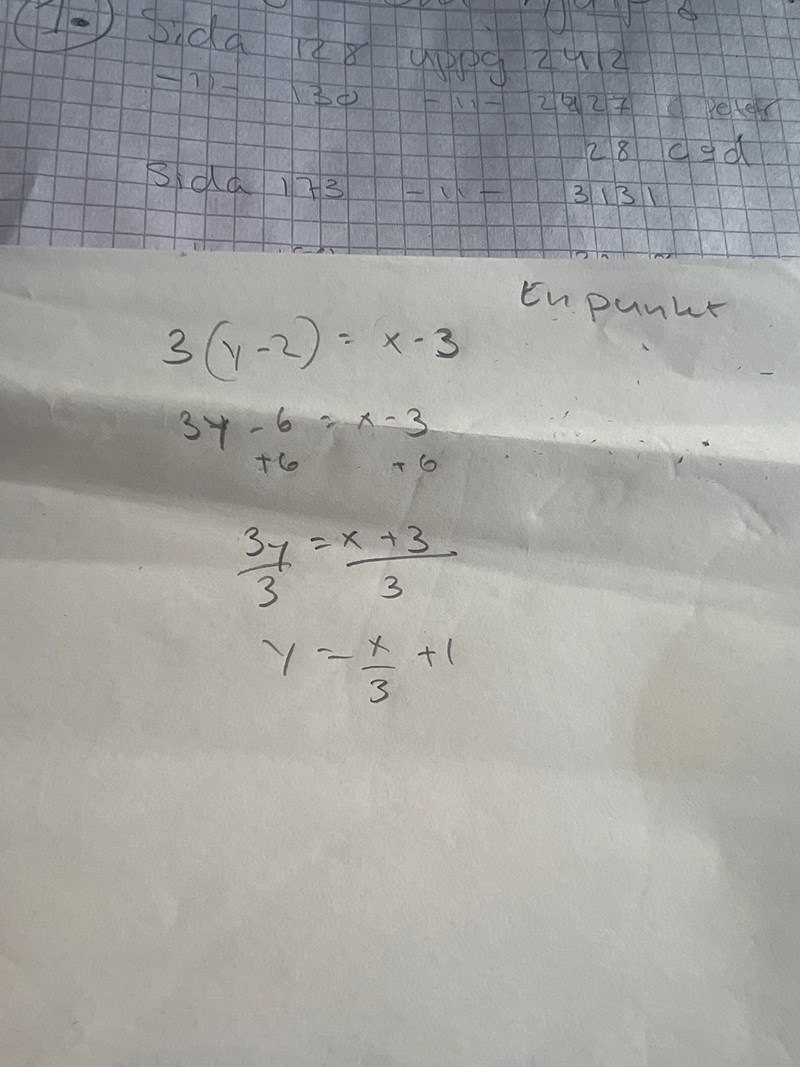 1. Sida 128 uppg 2412
-"- 130 -"- 2427
28 c g d
Sida 173 -"- 3131
En punkt
3(y-2) = x-3
3y - 6 = x - 3
+6 +6
3y/3 = x + 3/3
y = x/3 + 1